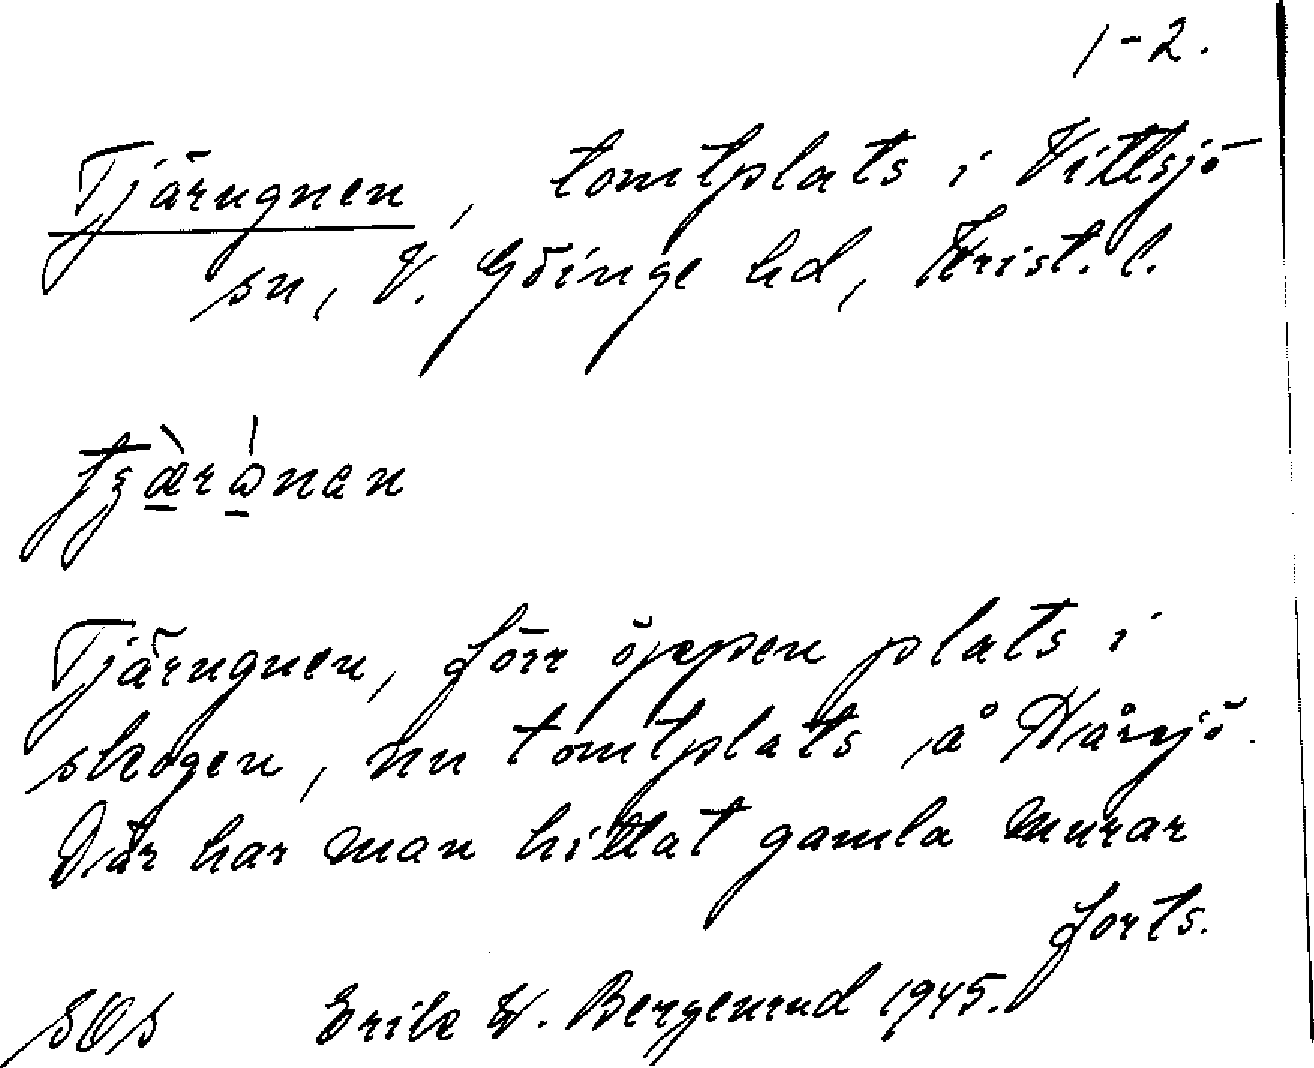 1-2.
Tjärugnen, tomtplats i Vittsjö
sn, V. Göinge hd, Krist. l.
Tjärugnen, förr öppen plats i
skogen, nu tomtplats å Hårsjö.
Där har man hittat gamla murar
forts.
SOS Erik W. Bergenrud 1945.